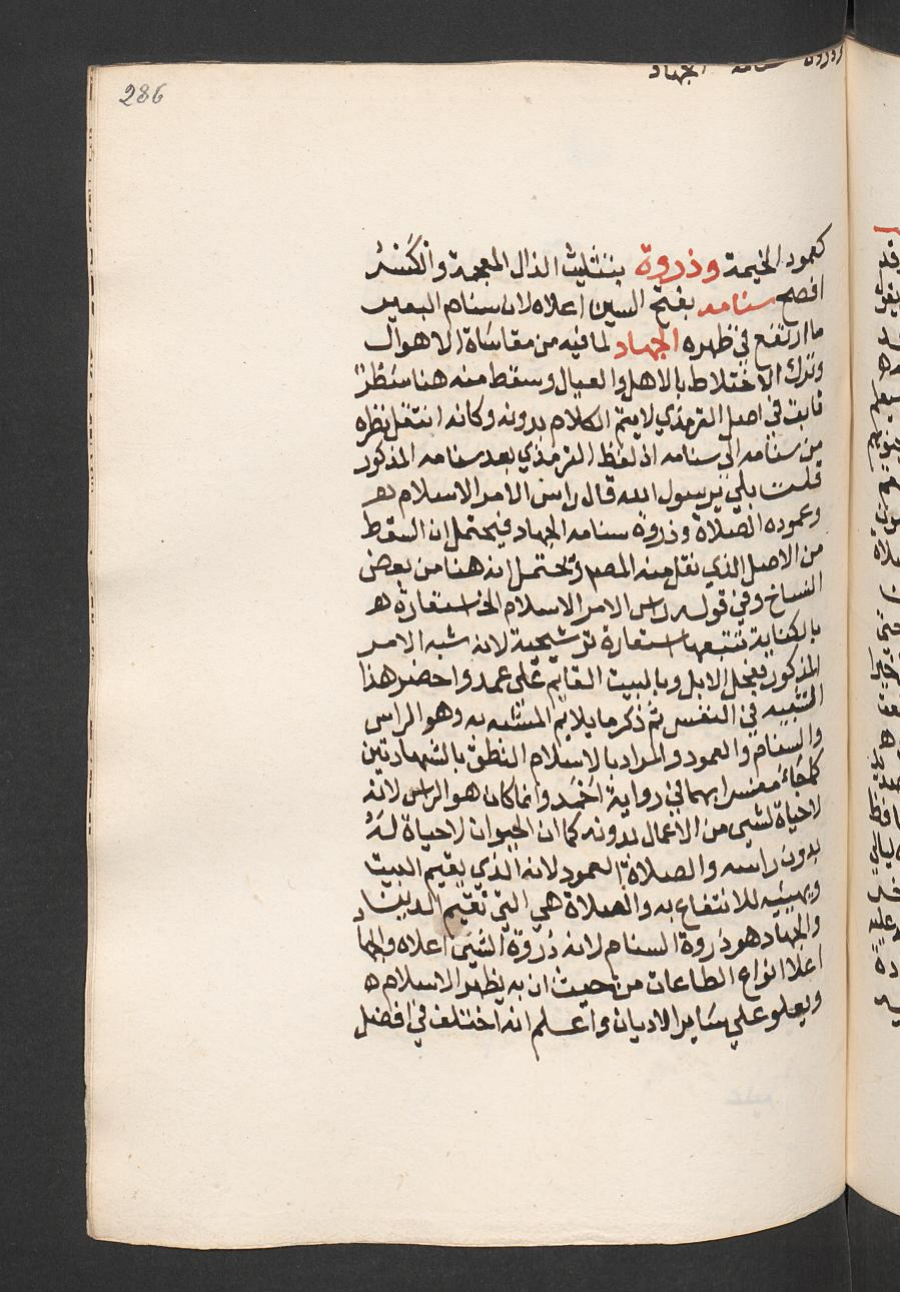 286
وذروة سنامه الجهاد
كعمود الخيمة وذروة بتثليث الذال المعجمة والكسر
افصح سنامه بفتح السين اعلاه لان سنام البعير
ما ارتفع في ظهره الجهاد لما فيه من مقاساة الاهوال
وترك الاختلاط بالاهل والعيال وسقط منه هنا سطر
ثابت في اصل الترمذي لا يتم الكلام بدونه وكانه انتقل نظره
من سنامه الي سنامه اذ لفظ الترمذي بعد سنامه المذكور
قلت بلي يرسول الله قال راس الامر الاسلام ه
وعموده الصلاة وذروة سنامه الجهاد فيحتمل ان السقط
من الاصل الذي نقل منه المصم ويحتمل انه هنا من بعض
النساخ وفي قوله راس الامر الاسلام الخ استعارة ه
بالكناية تتبعها استعارة ترشيحية لانه شبه الامر
المذكور بفحل الابل وبالبيت القايم علي عمد واضمر هذا
التشبيه في النفس ثم ذكر ما يلايم المشبه به وهو الراس
والسنام والعمود والمراد بالاسلام النطق بالشهادتين
كما جاء مفسرا بهما في رواية احمد وانما كان هو الراس لانه
لا حياة لشي من الاعمال بدونه كما ان الحيوان لا حياة له
بدون راسه والصلاة العمود لانه الذي يقيم البيت
ويهيئه للانتفاع به والصلاة هي التي تقيم الدين
والجهاد هو ذروة السنام لانه ذروة الشي اعلاه والجها
اعلا انواع الطاعات من حيث ان به يظهر الاسلام ه
ويعلو علي ساير الاديان واعلم انه اختلف في افضل